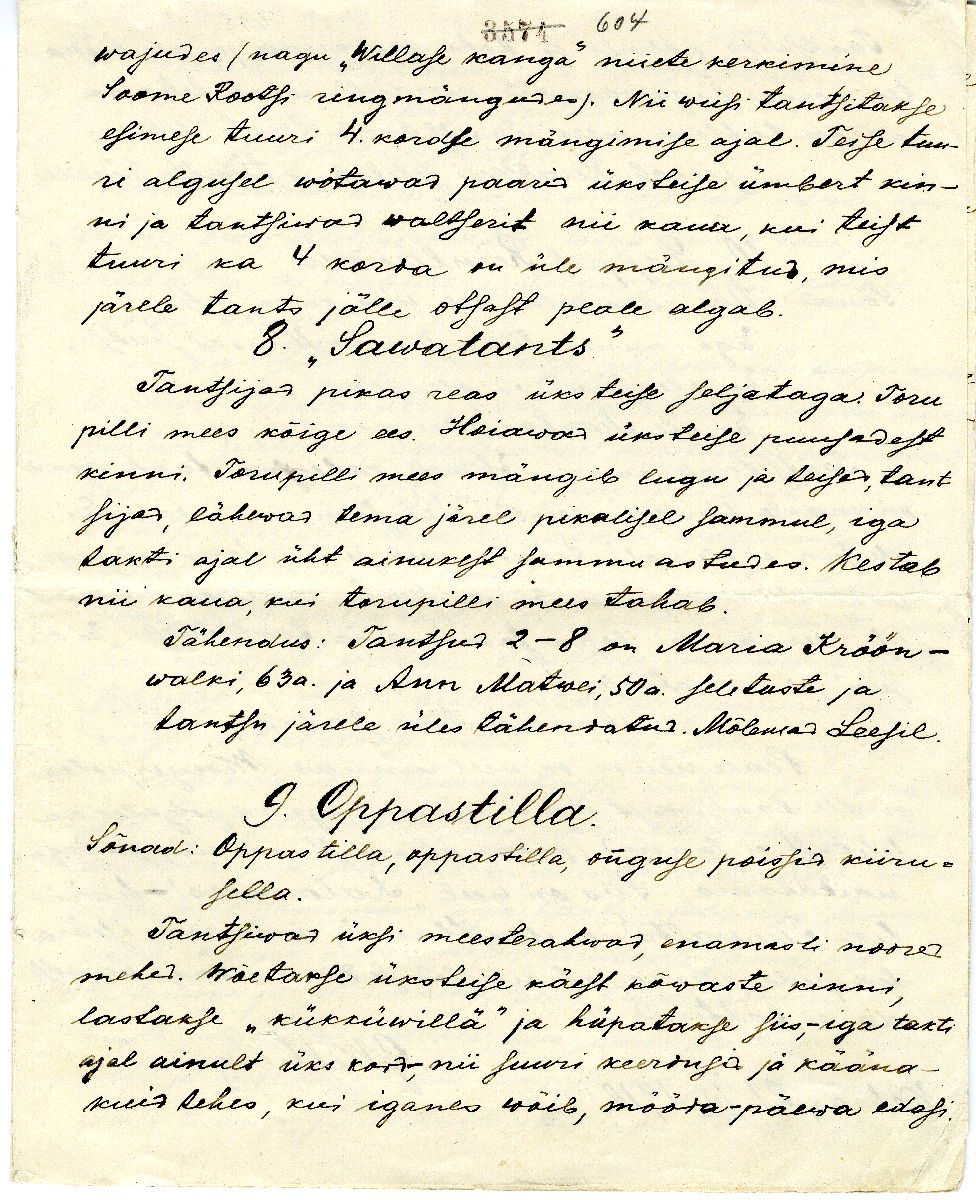 3571 604
wajudes (nagu „Willase kanga” niiete kerkimine
Soome Rootsi ringmängudes). Nii wiisi tantsitakse
esimese tuuri 4. kordse mängimise ajal. Teise tuu-
ri algusel wõtawad paarid üksteise ümbert kin-
ni ja tantsiwad waltserit nii kaua, kui teist
tuuri ka 4 korda on üle mängitud, mis
järele tants jälle otsast peale algab.
8. „Sawatants”
Tantsijad pikas reas üksteise seljataga. Toru
pilli mees kõige ees. Hoiawad üksteise puusadest
kinni. Torupilli mees mängib lugu ja teised, tant
sijad, lähewad tema järel pikalisel sammul, iga
takti ajal üht ainukest sammu astudes. Kestab
nii kaua, kui torupilli mees tahab.
Tähendus: Tantsud 2–8 on Maria Kröön-
walki, 63a. ja Ann Matwei, 50a. seletuste ja
tantsu järele üles tähendatud. Mõlemad Leesil.
9. Oppastilla.
Sõnad: Oppastilla, oppastilla, õnguse poissid kiiru=
sella.
Tantsiwad üksi meesterahwad, enamasti noored
mehed. Wõetakse üksteise käest kõwaste kinni,
lastakse „kükküwillä” ja hüpatakse siis,-iga takti
ajal ainult üks kord-, nii suuri keerdusid ja kääna-
kuid tehes, kui iganes wõib, mööda-päewa edasi.